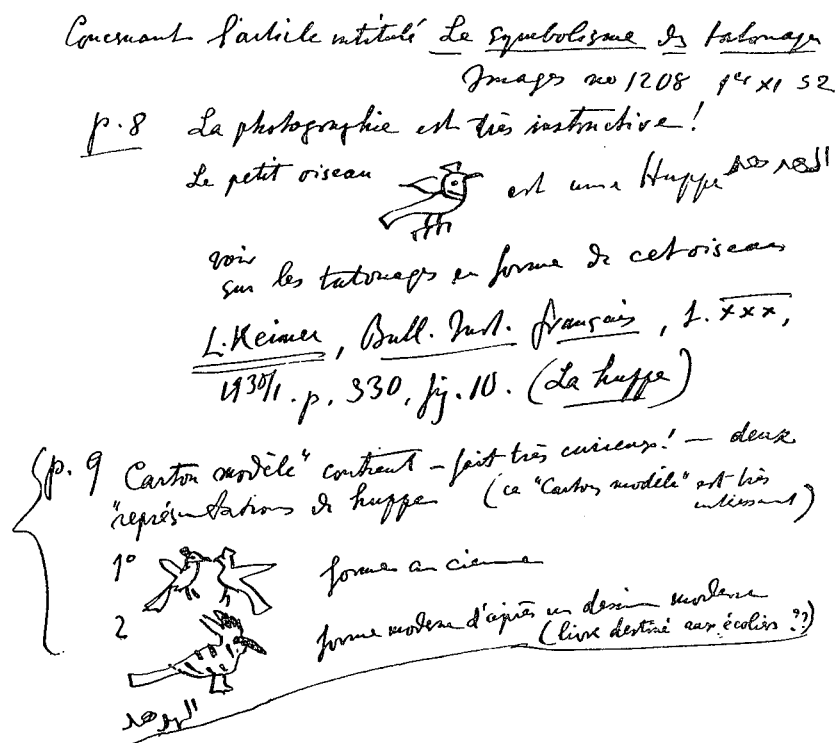 Concernant l'article intitulé Le symbolisme des tatouages
Images no 1208 1er XI 52
p. 8 La photographie est très instructive!
Le petit oiseau est une Huppe الهدهد
voir
sur les tatouages en forme de cet oiseau
L. Keimer, Bull. Inst. français, t. XXX,
1930/1. p. 330, fig. 10. (La huppe)
p. 9 Carton modèle" contient – fait très curieux! – deux
"représentations de huppe (ce "Carton modèle" est très
intéressant)
1° forme ancienne
2 forme moderne d'après un dessin moderne
(livre destiné aux écoliers ??)
الهدهد